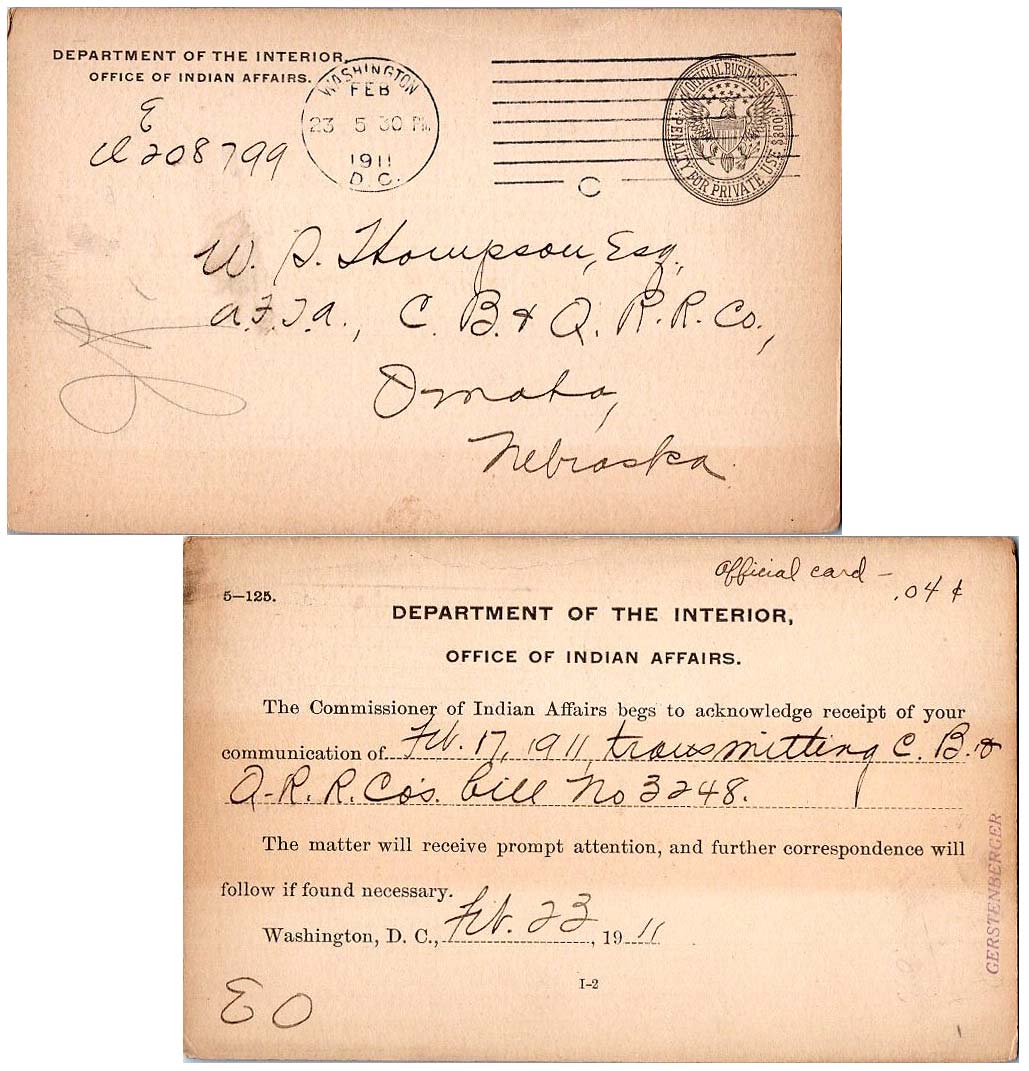 DEPARTMENT OF THE INTERIOR,
OFFICE OF INDIAN AFFAIRS.
E
208799
WASHINGTON
FEB
23 5 30 PM
1911
D. C.
C
OFFICIAL BUSINESS
PENALTY FOR PRIVATE USE $300
W. S. Thompson, Esq.,
A.F.T.A., C. B. & Q. R.R. Co.,
Omaha,
Nebraska.
Official card –
.04 ¢
5—125.
DEPARTMENT OF THE INTERIOR,
OFFICE OF INDIAN AFFAIRS.
The Commissioner of Indian Affairs begs to acknowledge receipt of your
communication of Feb. 17, 1911, transmitting C. B. &
Q. R. R. Co's. bill No 3248.
The matter will receive prompt attention, and further correspondence will
follow if found necessary.
Washington, D. C., Feb. 23, 1911
I-2
E O
GERSTENBERGER